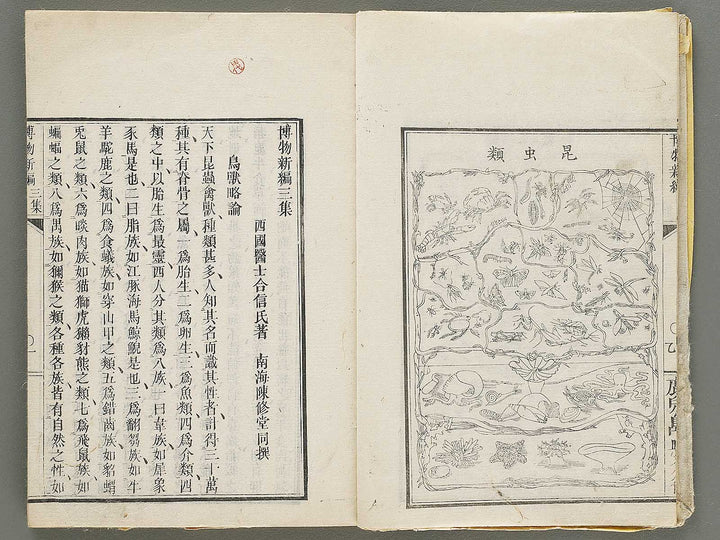 昆虫類
博物新編三集
西國醫士合信氏著 南海陳修堂同撰
鳥獸略論
天下昆蟲禽獸種類甚多人知其名而識其性者計得三十萬
種其有脊骨之屬一爲胎生二爲卵生三爲魚類四爲介類四
類之中以胎生爲最靈西人分其類爲八族一曰韋族如犀象
豕馬是也二曰脂族如江豚海馬鯨鯢是也三爲翻芻族如牛
羊駝鹿之類四爲食蟻族如穿山甲之類五爲錯齒族如貂蝟
兎鼠之類六爲啖肉族如猫獅虎獺豺熊之類七爲飛鼠族如
蝙蝠之類八爲禺族如獼猴之類各種各族皆有自然之性如
博物新編 三集